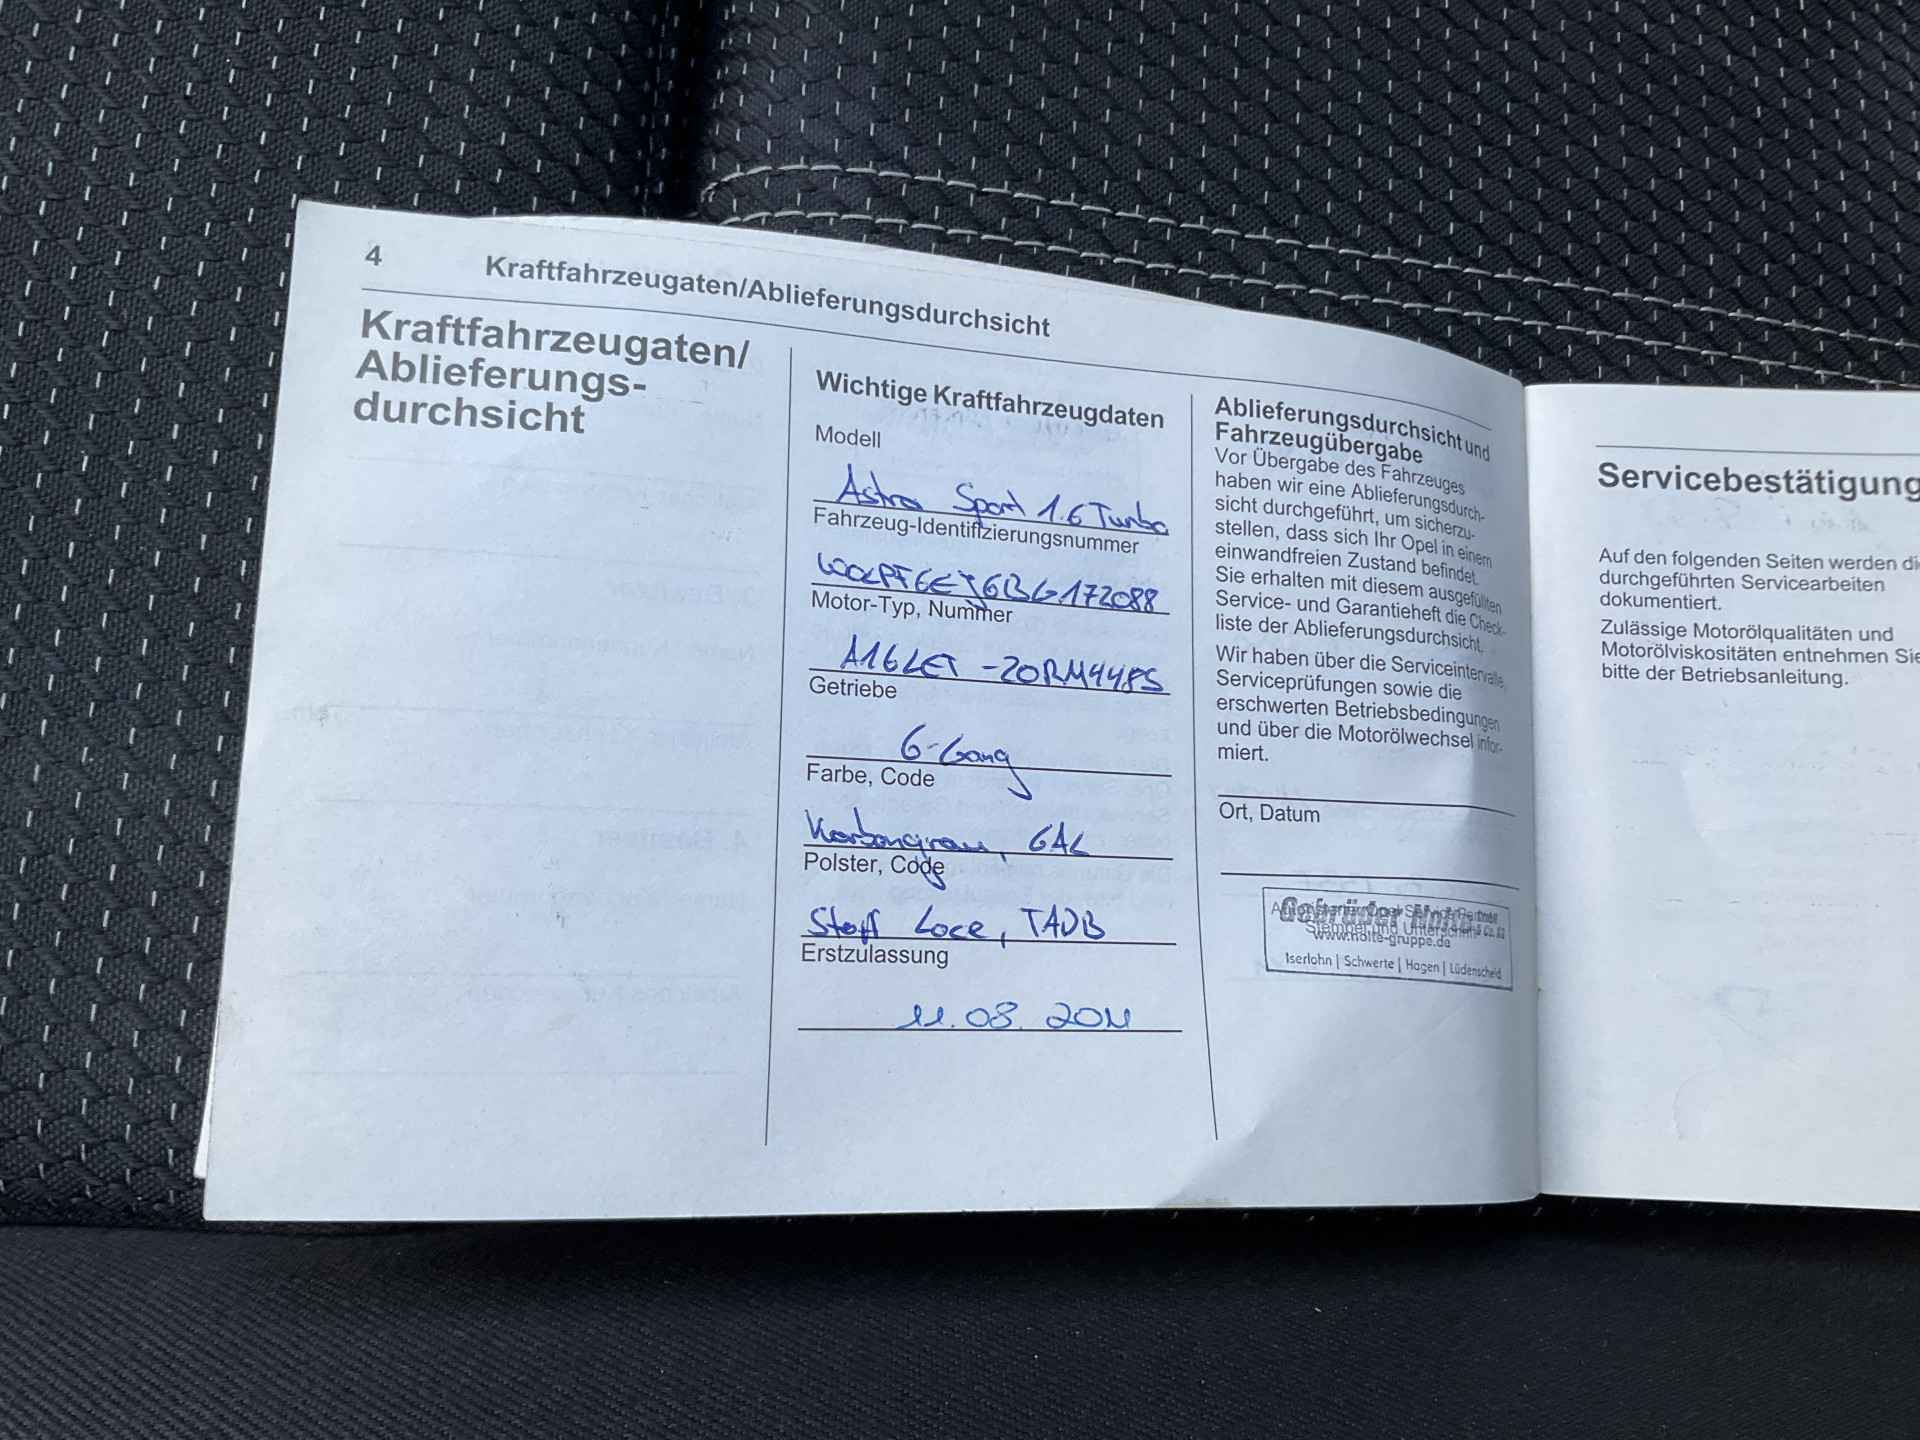 4 Kraftfahrzeugaten/Ablieferungsdurchsicht
Kraftfahrzeugaten/
Ablieferungs-
durchsicht
Wichtige Kraftfahrzeugdaten
Modell
Astra Sport 1.6 Turbo
Fahrzeug-Identifizierungsnummer
Motor-Typ, Nummer
A16LET
Getriebe
6-Gang
Farbe, Code
Karbongrau, GAL
Polster, Code
Stoff Lace, TADB
Erstzulassung
11.08.2011
Ablieferungsdurchsicht und
Fahrzeugübergabe
Vor Übergabe des Fahrzeuges
haben wir eine Ablieferungsdurch-
sicht durchgeführt, um sicherzu-
stellen, dass sich Ihr Opel in einem
einwandfreien Zustand befindet.
Sie erhalten mit diesem ausgefüllten
Service- und Garantieheft die Check-
liste der Ablieferungsdurchsicht.
Wir haben über die Serviceintervalle,
Serviceprüfungen sowie die
erschwerten Betriebsbedingungen
und über die Motorölwechsel infor-
miert.
Ort, Datum
Stempel und Unterschrift
www.nolte-gruppe.de
Iserlohn | Schwerte | Hagen | Lüdenscheid
Servicebestätigung
Auf den folgenden Seiten werden
durchgeführten Servicearbeiten
dokumentiert.
Zulässige Motorölqualitäten und
Motorölviskositäten entnehmen Sie
bitte der Betriebsanleitung.